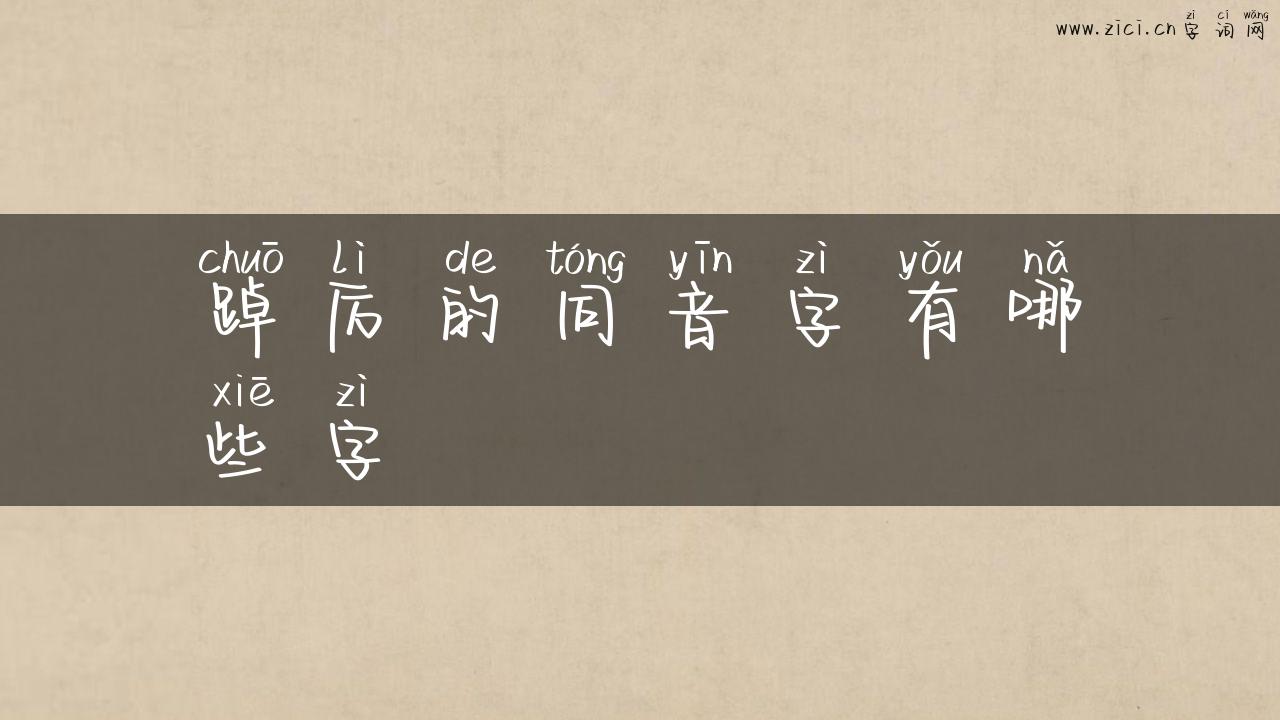 zì cí wǎng
www.zici.cn 字 词 网
chuō lì de tóng yīn zì yǒu nǎ
踔 厉 的 同 音 字 有 哪
xiē zì
些 字